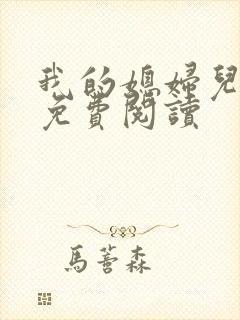 我的媳婦兒
免費閱讀
馬薈森